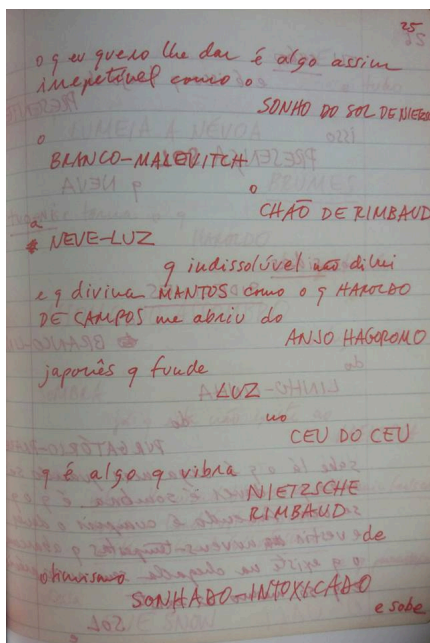 25
o q eu quero lhe dar é algo assim
irrepetível como o
SONHO DO SOL DE NIETZS
o
BRANCO-MALEVITCH
o
CHÃO DE RIMBAUD
a
NEVE-LUZ
q indissolúvel não dilui
e q divina MANTOS como o q HAROLDO
DE CAMPOS me abriu do
ANJO HAGOROMO
japonês q funde
LUZ
no
CEU DO CEU
q é algo q vibra
NIETZSCHE
RIMBAUD
de
otimismo
SONHADO-INTOXICADO
e sobe